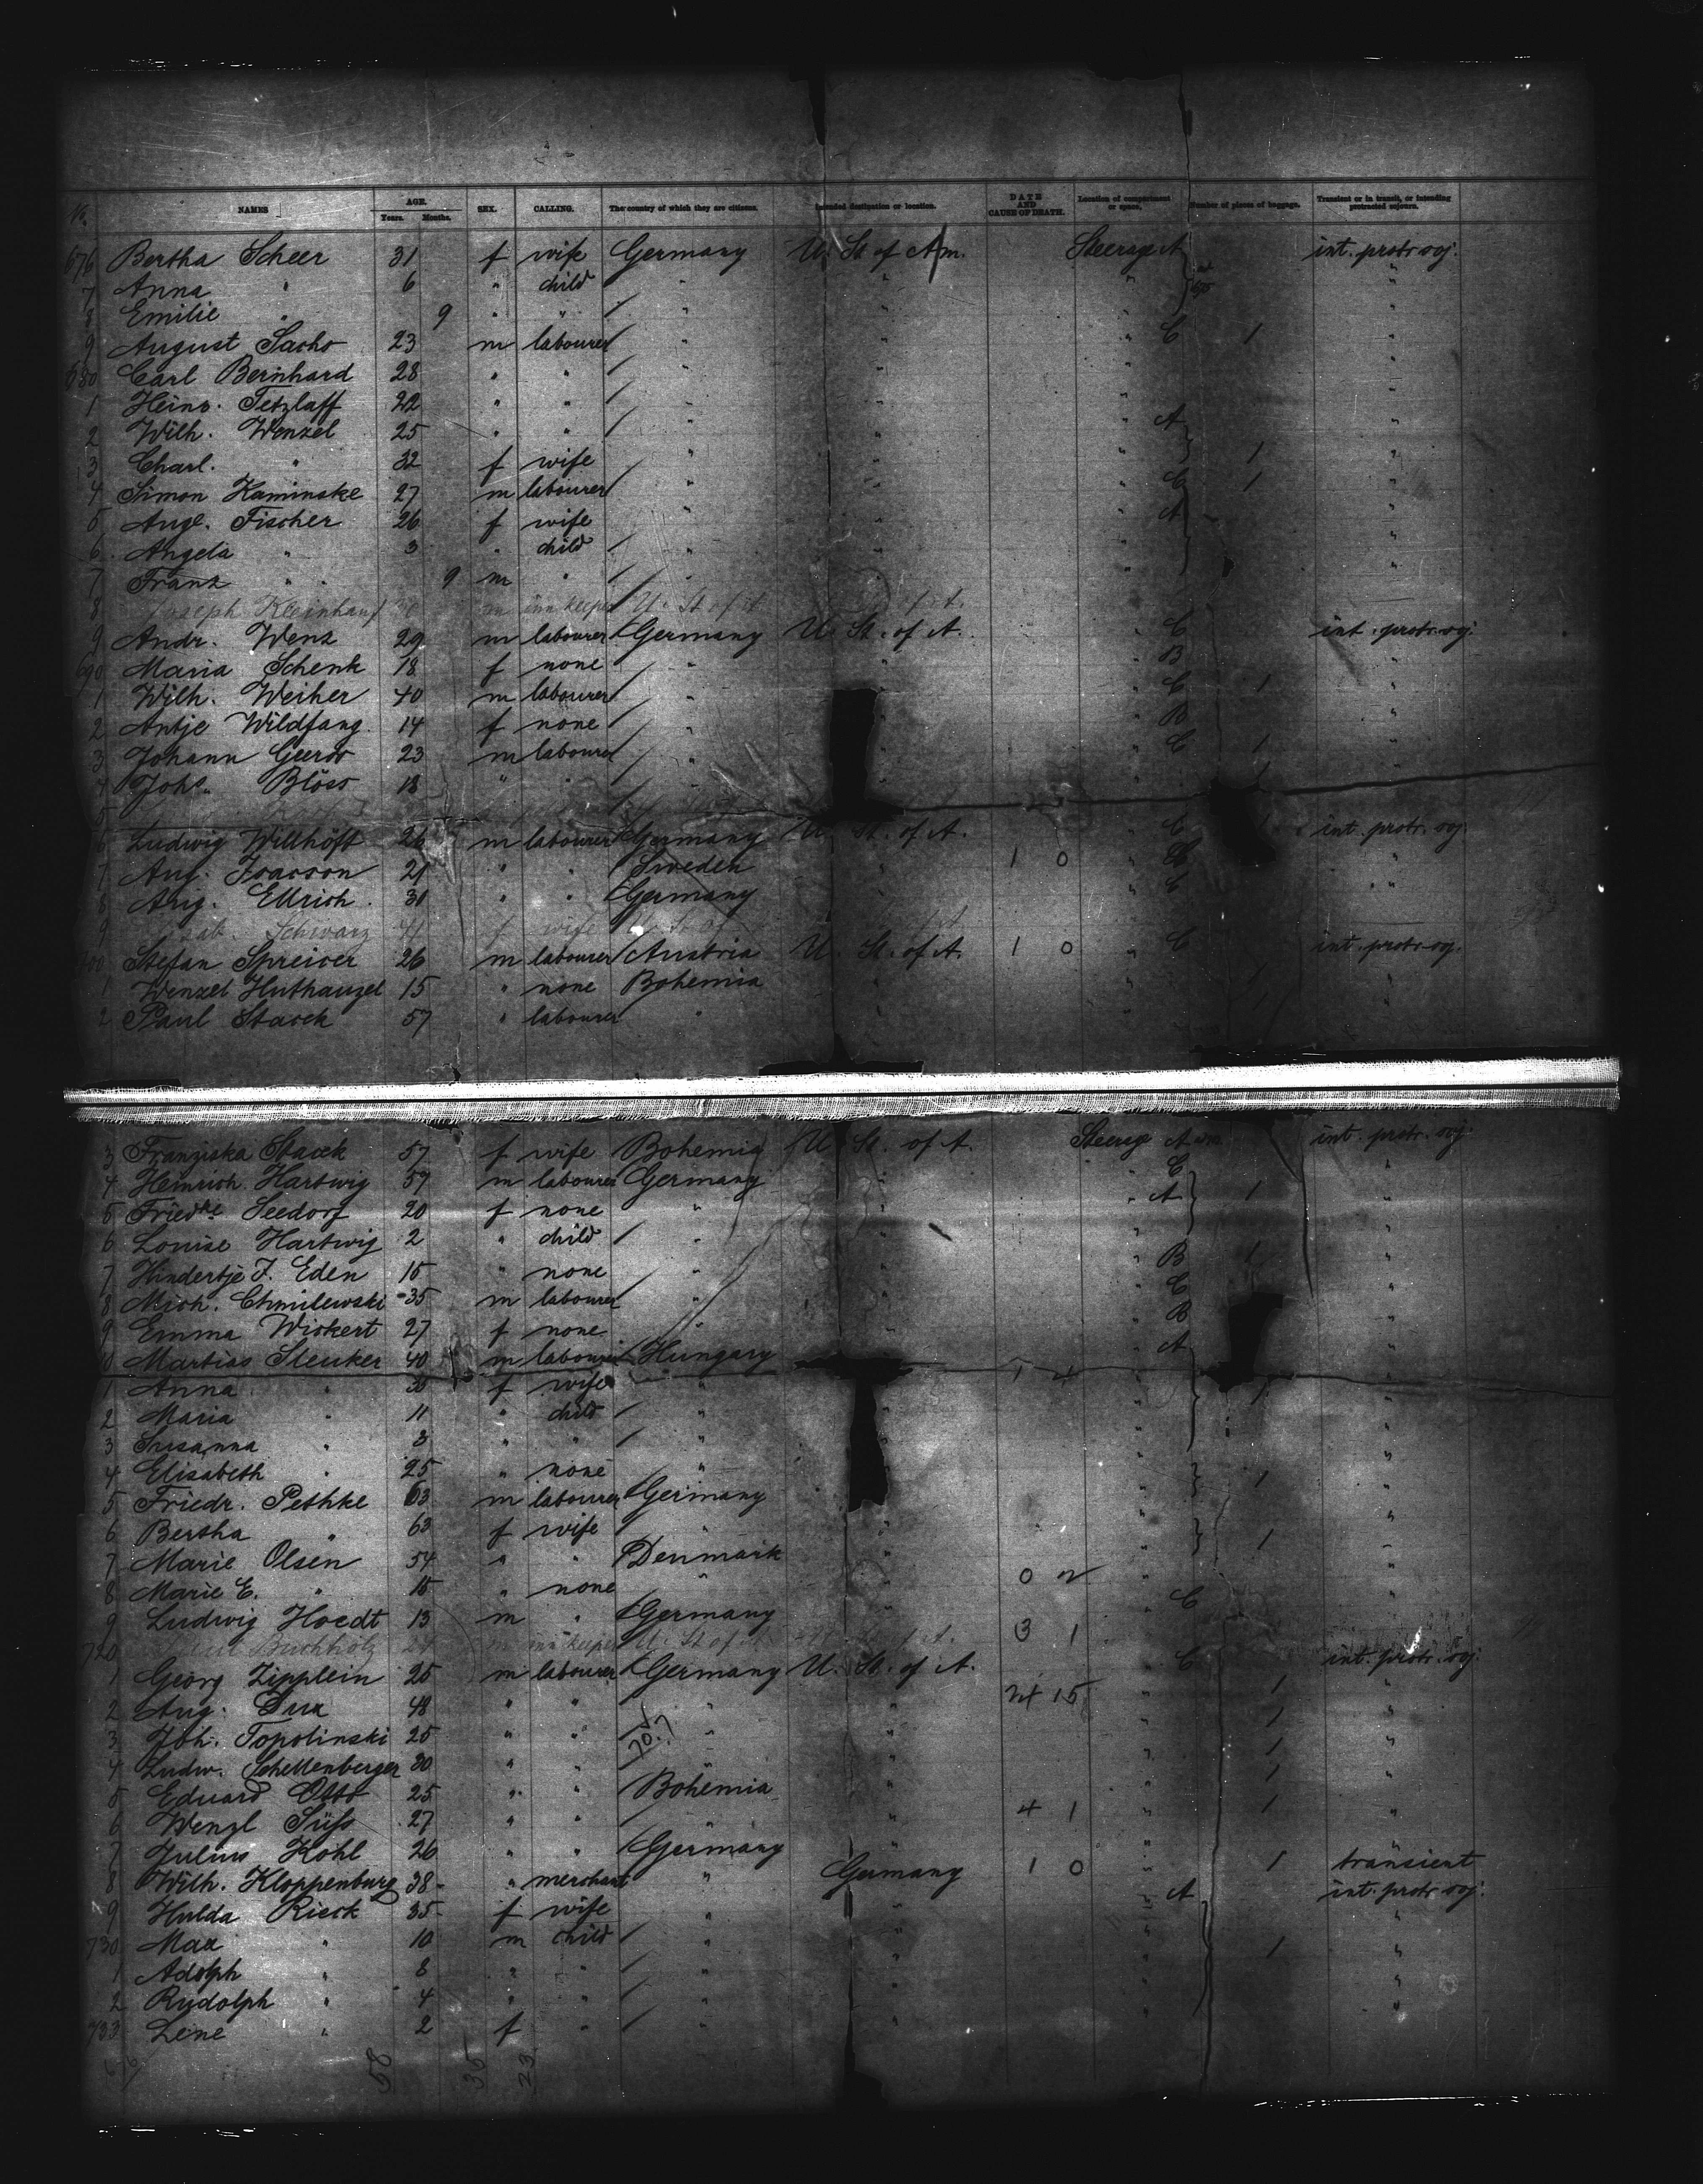 No. NAMES AGE. Years. Months. SEX. CALLING. The country of which they are citizens. Intended destination or location. DATE AND CAUSE OF DEATH. Location of compartment or space. Number of pieces of baggage. Transient or in transit, or intending protracted sojourn.
676 Bertha Scheer 31 f wife Germany U. St. of Am. Steerage A int. protr. soj.
7 Anna " 6 " child " " " "
8 Emilie " 9 " " " " " "
9 August Sachs 23 m labourer " " " C 1 "
680 Carl Bernhard 28 " " " " " "
1 Heinr. Tetzlaff 22 " " " " " "
2 Wilh. Wenzel 25 " " " " " A "
3 Charl. " 32 f wife " " " 1 "
4 Simon Kaminske 27 m labourer " " " C 1 "
5 Auge. Fischer 26 f wife " " " A "
6 Angela " 3 " child " " " "
7 Franz " 9 m " " " " "
8 Joseph Kleinhaus m inn keeper U. St. of A
9 Andr. Wenz 29 m labourer Germany U. St. of A. " C int. protr. soj.
690 Maria Schenk 18 f none " " " B "
1 Wilh. Weiher 40 m labourer " " " C 1 "
2 Antje Wildfang 14 f none " " " B "
3 Johann Geerds 23 m labourer " " " C 1 "
4 Johs. Blöss 18 " " " " "
5
6 Ludwig Willhöft 26 m labourer Germany U. St. of A. " C int. protr. soj.
7 Aug. Isacson 21 " " Sweden 1 0 " "
8 Aug. Ellrich 30 " " Germany " C "
9 Schwarz 41 f wife
700 Stefan Spreicer 26 m labourer Austria U. St. of A. 1 0 " C int. protr. soj.
1 Wenzel Huthanzel 15 " none Bohemia "
2 Paul Stacek 57 " labourer " "
3 Franziska Stacek 57 f wife Bohemia U. St. of A. Steerage A int. protr. soj.
4 Heinrich Hartwig 57 m labourer Germany C "
5 Friedke Seedorf 20 f none " " " A 1 "
6 Louise Hartwig 2 " child " " " "
7 Hindertje J. Eden 15 " none " " " B 1 "
8 Mich. Chmilewski 35 m labourer " " " C "
9 Emma Wickert 27 f none " " " B "
10 Martias Slenker 40 m labourer Hungary " A "
1 Anna " 30 f wife " 1 4 " 1 "
2 Maria " 11 " child " " " "
3 Susanna " 3 " " " " " "
4 Elisabeth " 25 " none " " "
5 Friedr. Pethke 63 m labourer Germany " 1 "
6 Bertha " 63 f wife " " " "
7 Marie Olsen 54 " " Denmark " " 1 "
8 Marie E. " 15 " none " " 0 2 " "
9 Ludwig Hoedt 13 m " Germany " C "
720 Buchholz m inn keeper U. St. of A. 3 1
1 Georg Zipplein 25 m labourer Germany U. St. of A. C int. protr. soj.
2 Aug. Dux 48 " " " " 24 15 " 1 "
3 Joh. Topolinski 25 " " " " " 1 "
4 Ludw. Schellenberger 30 " " " " " 1 "
5 Eduard Otto 25 " " Bohemia " " 1 "
6 Wenzl Süss 27 " " " " 4 1 " 1 "
7 Julius Kohl 26 " " Germany " " "
8 Wilh. Kloppenburg 38 " merchant " Germany 1 0 " 1 transient
9 Hulda Rieck 35 f wife " " " A int. protr. soj.
730 Max " 10 m child " " " "
1 Adolph " 8 " " " " " 1 "
2 Rudolph " 4 " " " " " "
733 Lene " 2 f " " " " "
58 35 23